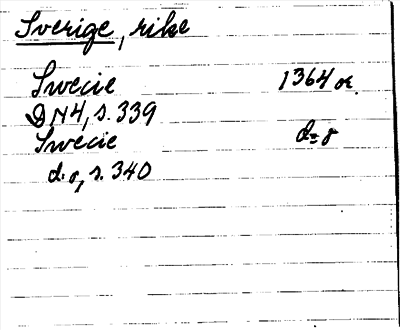 Sverige, rike
Swecie 1364 or.
DN4, s. 339
Swecie d:o
d.o, s. 340